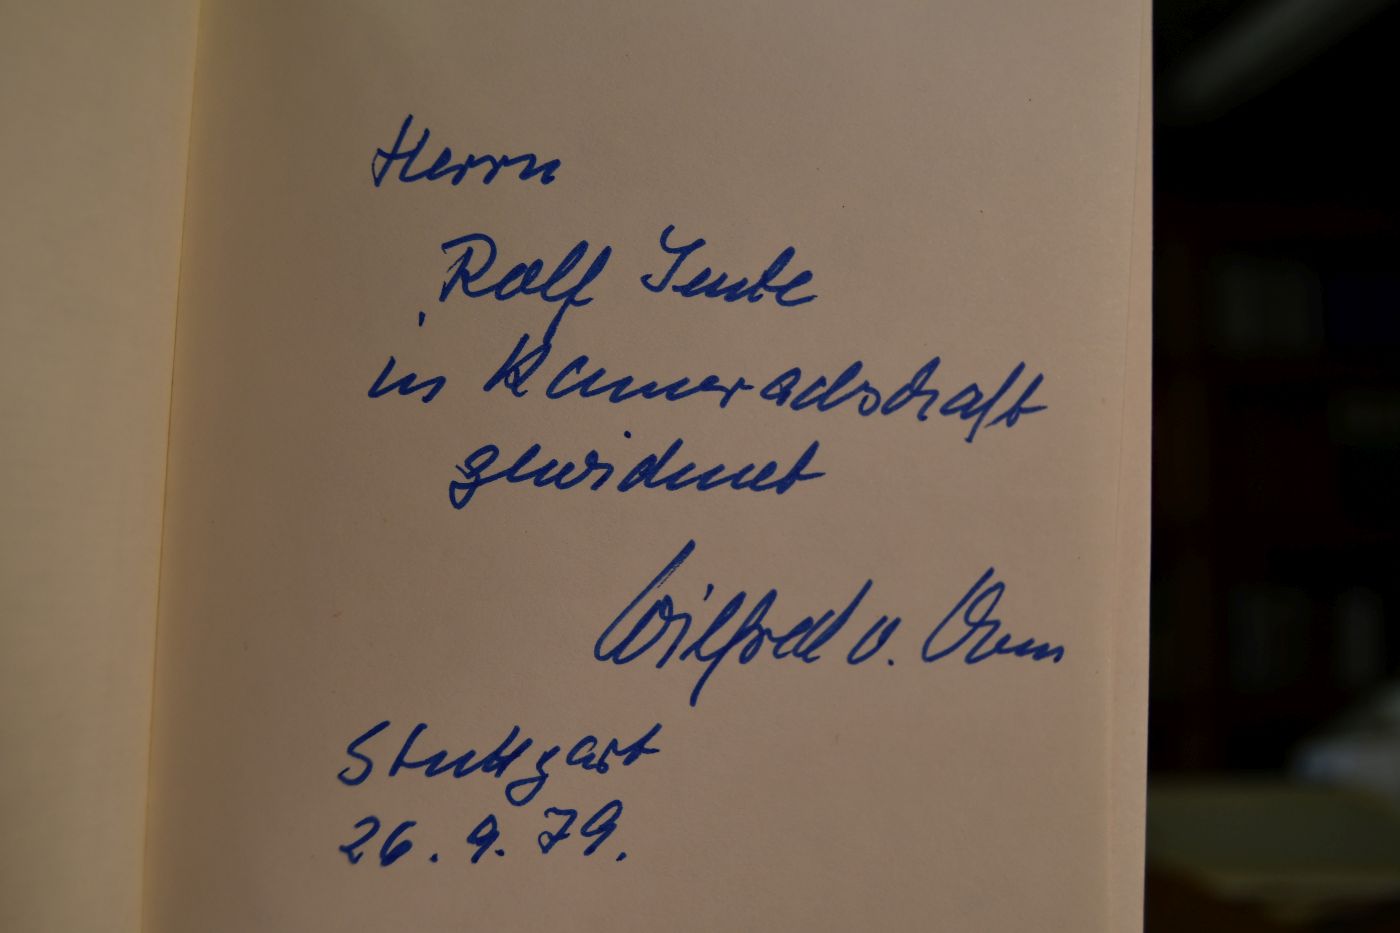 Herrn
Rolf Jente
in Kameradschaft
gewidmet
Wilfred v. Oven
Stuttgart
26.9.79.